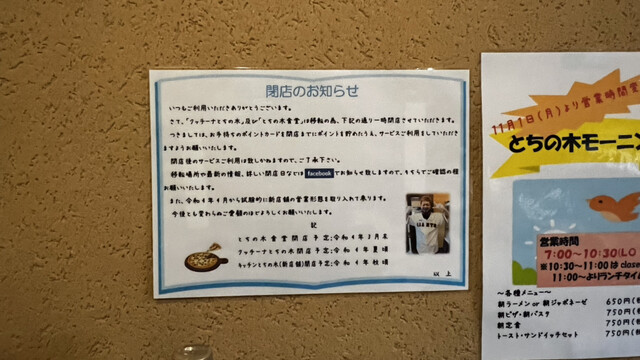 閉店のお知らせ
いつもご利用いただきありがとうございます。
さて、「クッチーナとちの木」及び「とちの木食堂」は移転の為、下記の通り一時閉店させていただきます。
つきましては、お手持ちのポイントカードを閉店までにポイントを貯めたうえ、サービスご利用をしていただき
ますようお願いいたします。
閉店後のサービスご利用は致しかねますので、ご了承下さい。
移転場所や最新の情報、詳しい閉店日などは facebook でお知らせ致しますので、そちらでご確認の程
お願いいたします。
また、令和4年4月から試験的に新店舗の営業形態を取り入れて参ります。
今後とも変わらぬご愛顧のほどよろしくお願いいたします。
記
とちの木食堂閉店予定;令和4年3月末
クッチーナとちの木閉店予定;令和4年夏頃
キッチンとちの木(新店舗)開店予定;令和4年秋頃
以上
11月1日(月)より営業時間変
とちの木モーニン
営業時間
7:00~10:30(LO
※10:30~11:00は close
11:00~よりランチタイム
~各種メニュー~
朝ラーメン or 朝ジャポネーゼ 650円(税
朝ピザ・朝パスタ 750円(税
朝定食 750円(税
トースト・サンドイッチセット 750円(税